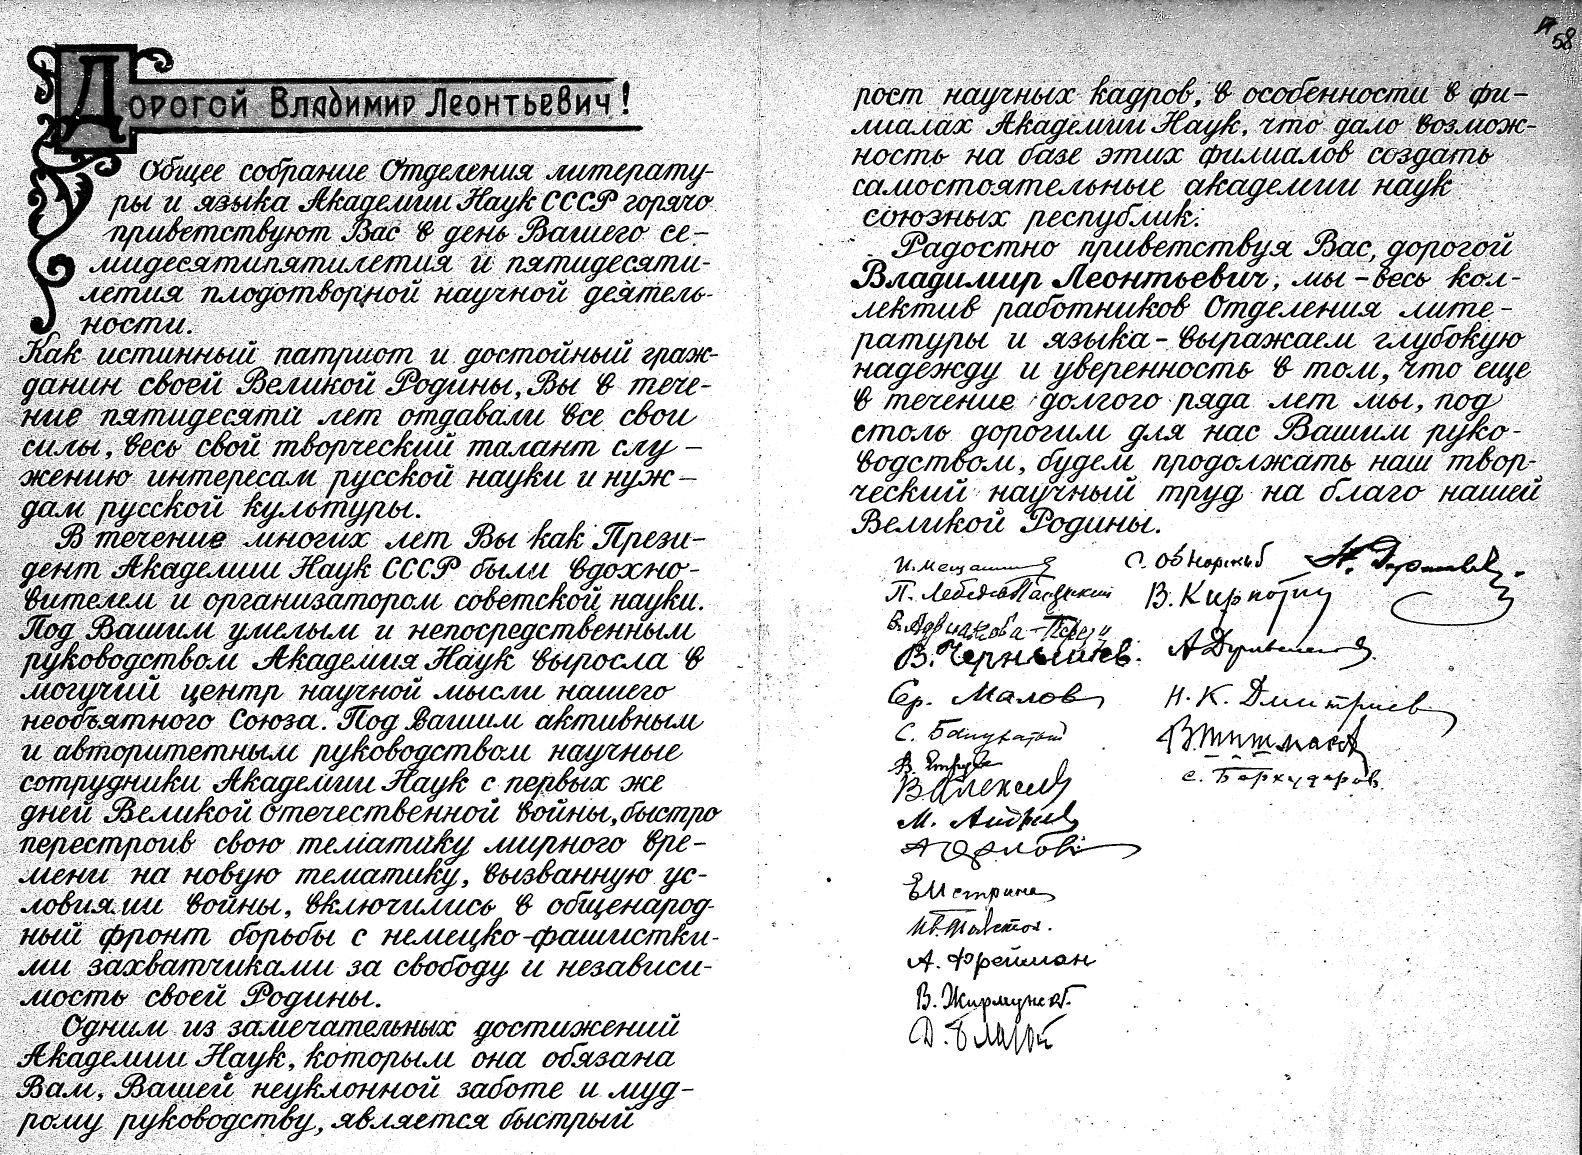 Дорогой Владимир Леонтьевич!
Общее собрание Отделения литерату-
ры и языка Академии Наук СССР горячо
приветствуют Вас в день Вашего се-
мидесятипятилетия и пятидесяти-
летия плодотворной научной деятель-
ности.
Как истинный патриот и достойный граж-
данин своей Великой Родины, Вы в тече-
ние пятидесяти лет отдавали все свои
силы, весь свой творческий талант слу-
жению интересам русской науки и нуж-
дам русской культуры.
В течение многих лет Вы как Прези-
дент Академии Наук СССР были вдохно-
вителем и организатором советской науки.
Под Вашим умелым и непосредственным
руководством Академия Наук выросла в
могучий центр научной мысли нашего
необъятного Союза. Под Вашим активным
и авторитетным руководством научные
сотрудники Академии Наук с первых же
дней Великой Отечественной войны, быстро
перестроив свою тематику мирного вре-
мени на новую тематику, вызванную ус-
ловиями войны, включились в общенарод-
ный фронт борьбы с немецко-фашистки-
ми захватчиками за свободу и независи-
мость своей Родины.
Одним из замечательных достижений
Академии Наук, которым она обязана
Вам, Вашей неуклонной заботе и муд-
рому руководству, является быстрый
58
рост научных кадров, в особенности в фи-
лиалах Академии Наук, что дало возмож-
ность на базе этих филиалов создать
самостоятельные академии наук
союзных республик.
Радостно приветствуя Вас, дорогой
Владимир Леонтьевич, мы - весь кол-
лектив работников Отделения лите-
ратуры и языка - выражаем глубокую
надежду и уверенность в том, что еще
в течение долгого ряда лет мы, под
столь дорогим для нас Вашим руко-
водством, будем продолжать наш твор-
ческий научный труд на благо нашей
Великой Родины.
И. Мещанинов
П. Лебедев-Полянский
В. Адрианова-Перетц
В. Чернышев.
Сер. Малов
С. Бархударов
В. Алексеев
М. Андреев
А. Орлов
Е. Истрина
И. Толстой.
А. Фрейман
В. Жирмунский
Д. Благой
С. Обнорский
В. Кирпотин
Н. К. Дмитриев
В. Шишмарев
С. Бархударов
Н. Державин